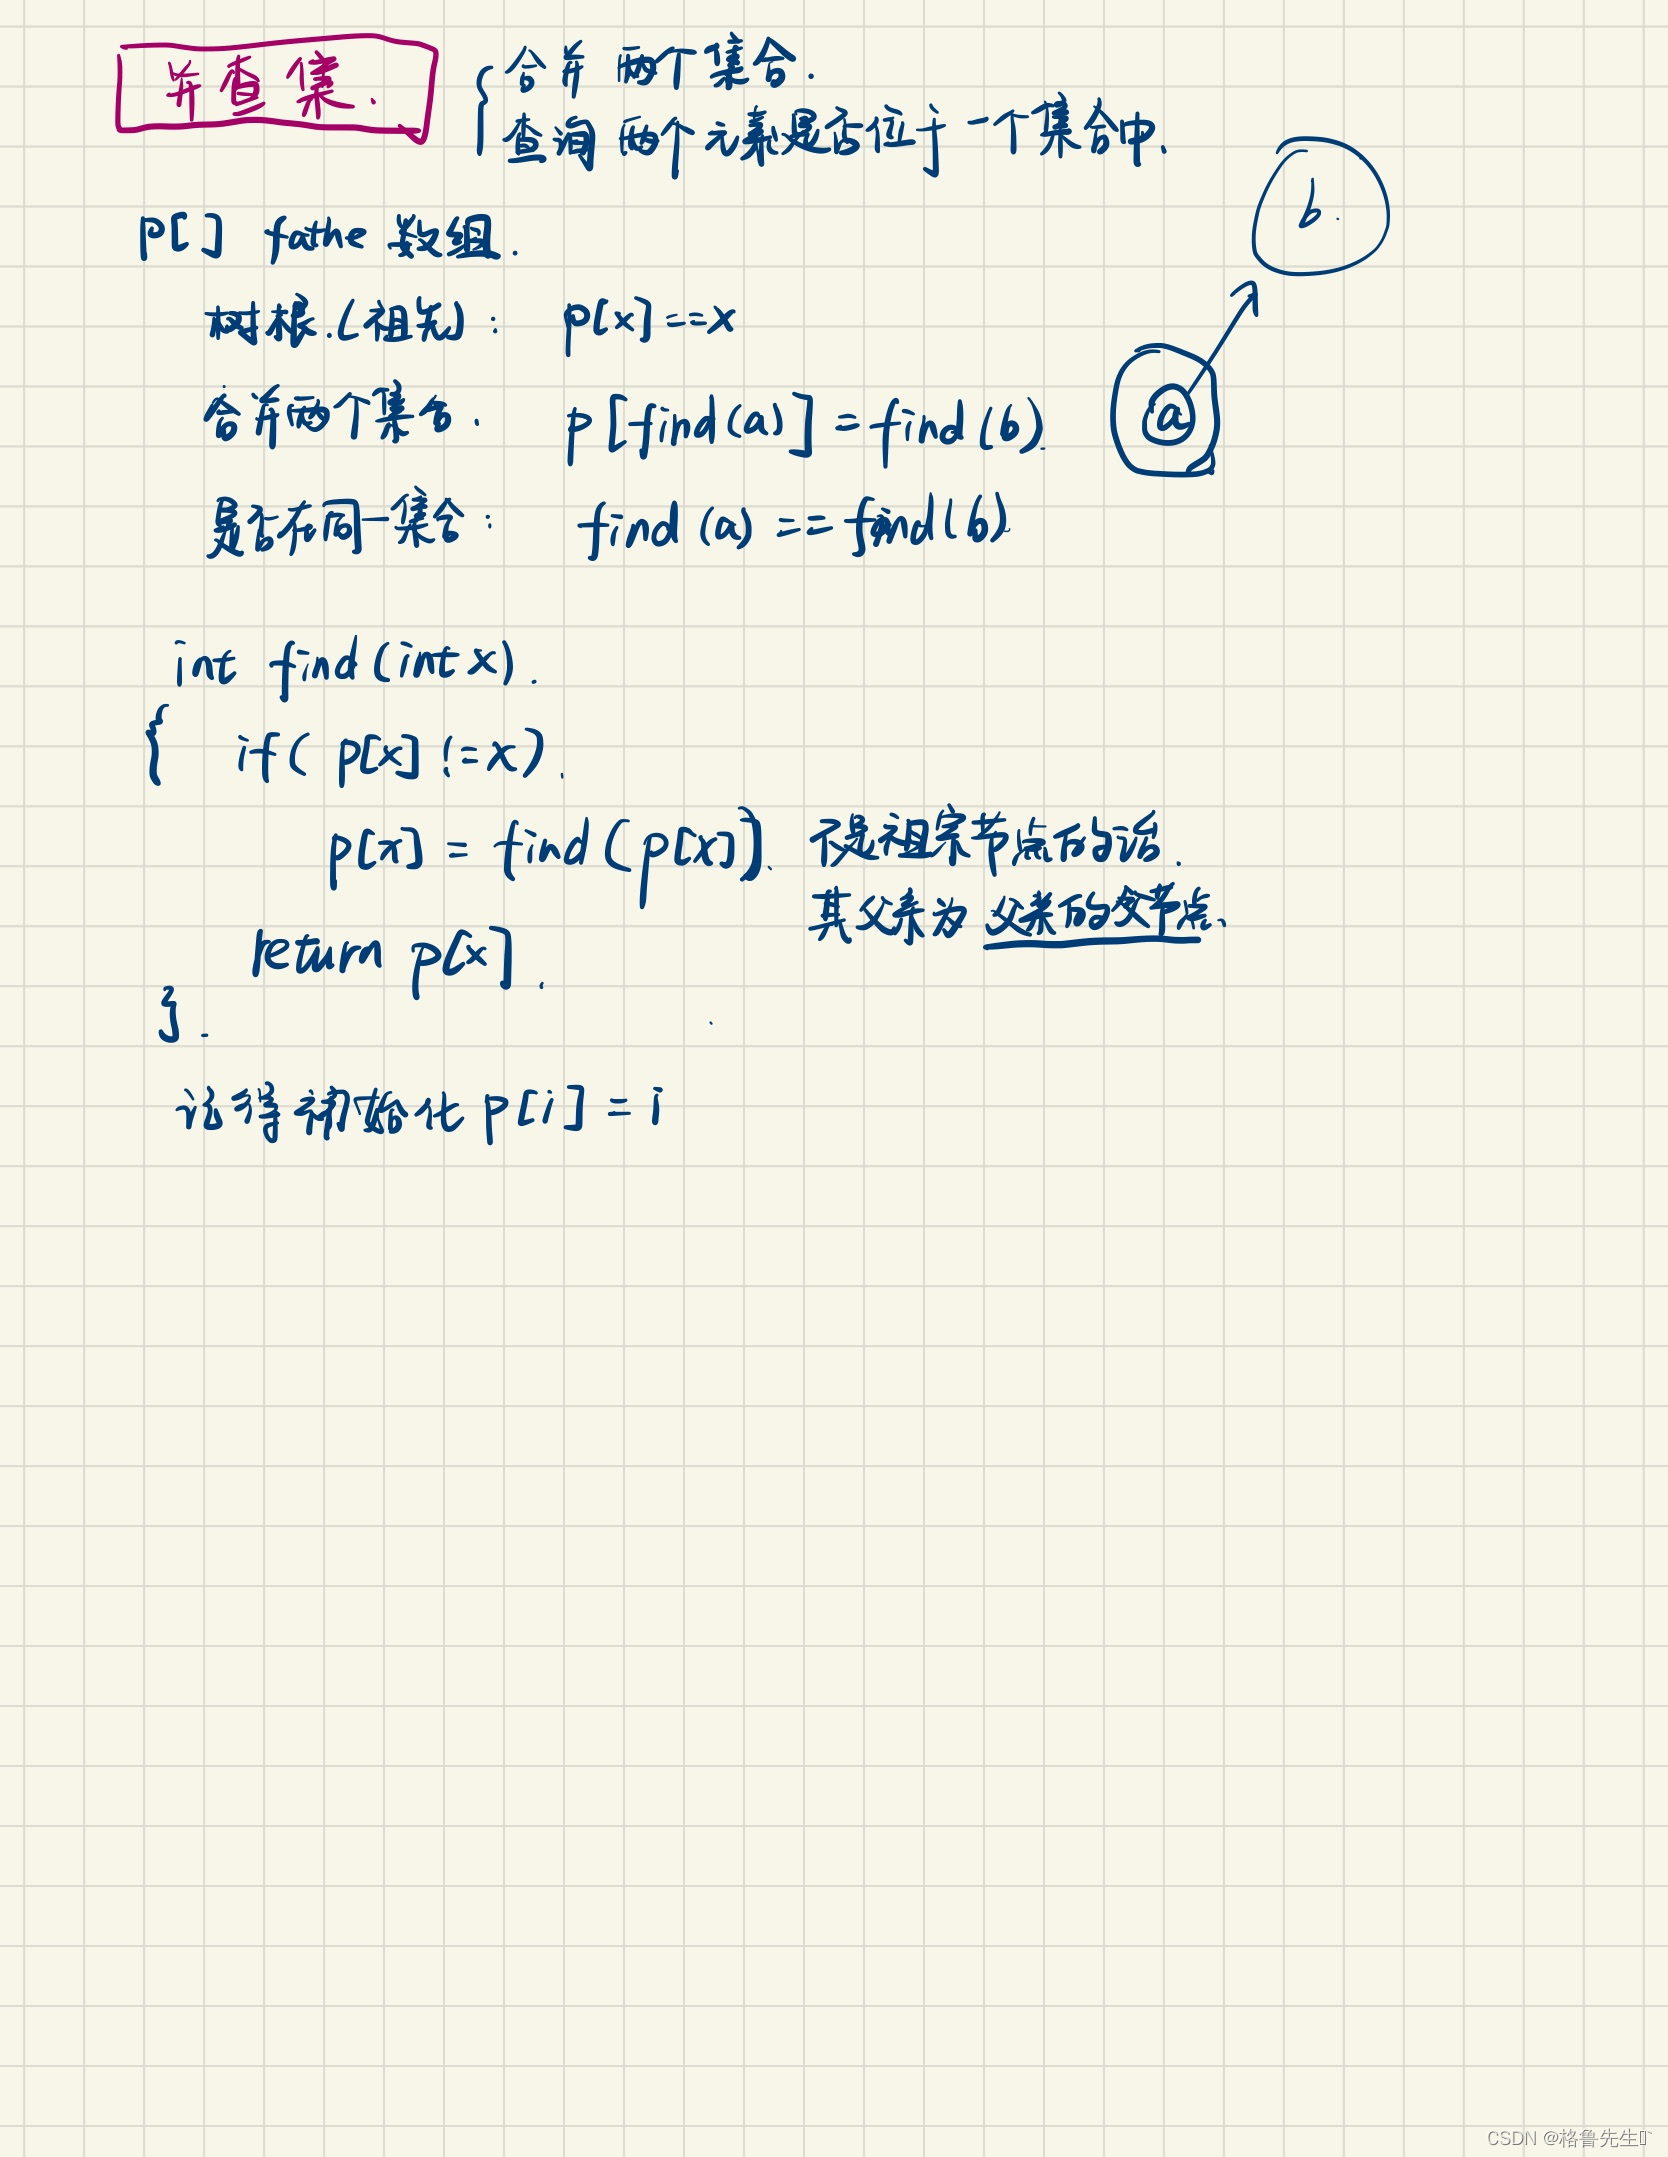 并查集.
合并两个集合.
查询两个元素是否位于一个集合中.
p[] fathe 数组.
树根.(祖先): p[x]==x
合并两个集合. p[find(a)]=find(b).
是否在同一集合: find(a)==find(b)
b.
a
int find(int x).
{ if( p[x] !=x).
p[x] = find(p[x]). 不是祖宗节点的话.
其父亲为 父亲的父节点.
return p[x].
}.
记得初始化 p[i]=i
CSDN @格鲁先生